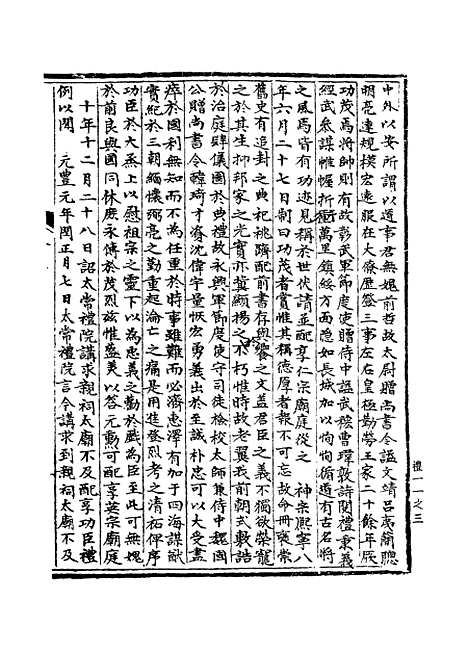 中外以安所謂以道事君無媿前哲故太尉贈尚書令謚文靖呂夷簡聰
明亮達規模宏遠服在大僚歷登三事左右皇極勤勞王家二十餘年厥
功茂焉將帥則有故彰武軍節度使贈侍中謚武穆曹瑋敦詩閱禮秉義
經武參謀帷幄折衝萬里鎮綏方面隱如長城加以恂恂循道有古名將
之風焉皆有功迹見稱於世伏請並配享仁宗廟庭從之　神宗熙寧八
年六月二十七日制曰功茂者賞惟其稱德厚者報不可忘故命冊襃崇
舊史有追封之典祀祧躋配前書存與饗之文蓋君臣之義不獨欲榮寵
之於其生抑邦家之光實亦冀顯揚之不朽惟時故老翼我前朝式敷誥
於治庭肆儀圖於典禮故永興軍節度使守司徒檢校太師兼侍中魏國
公贈尚書令韓琦才資沈偉宇量恢宏勇義出於至誠朴忠可以大受盡
瘁於國利無知而不為任重於時事雖難而必濟惠澤有加于四海謀猷
實紀於三朝緬懷弼亮之勤重起淪亡之痛是用進登烈考之清祏俾序
功臣於大烝上以慰祖宗之靈下以為忠義之勸於戲為臣至此可無媿
於前良與國同休庶永傳於茂烈茲惟盛美以答元勳可配享英宗廟庭
十年十二月二十八日詔太常禮院講求親祠太廟不及配享功臣禮
例以聞　元豐元年閏正月七日太常禮院言今講求到親祠太廟不及
禮一一之三